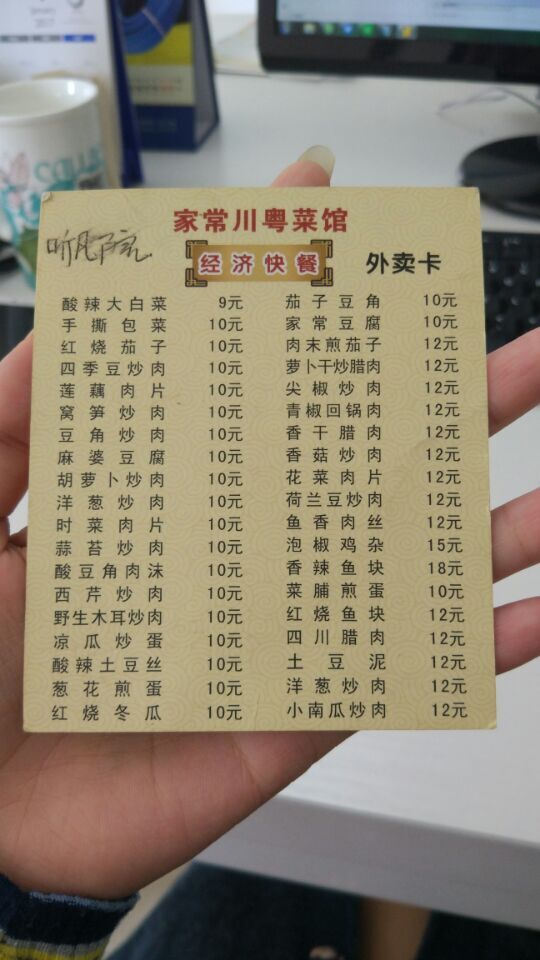 家常川粤菜馆
经济快餐
外卖卡
酸辣大白菜 9元
手撕包菜 10元
红烧茄子 10元
四季豆炒肉 10元
莲藕肉片 10元
窝笋炒肉 10元
豆角炒肉 10元
麻婆豆腐 10元
胡萝卜炒肉 10元
洋葱炒肉 10元
时菜肉片 10元
蒜苔炒肉 10元
酸豆角肉沫 10元
西芹炒肉 10元
野生木耳炒肉 10元
凉瓜炒蛋 10元
酸辣土豆丝 10元
葱花煎蛋 10元
红烧冬瓜 10元
茄子豆角 10元
家常豆腐 10元
肉末煎茄子 12元
萝卜干炒腊肉 12元
尖椒炒肉 12元
青椒回锅肉 12元
香干腊肉 12元
香菇炒肉 12元
花菜肉片 12元
荷兰豆炒肉 12元
鱼香肉丝 12元
泡椒鸡杂 15元
香辣鱼块 18元
菜脯煎蛋 10元
红烧鱼块 12元
四川腊肉 12元
土豆泥 12元
洋葱炒肉 12元
小南瓜炒肉 12元